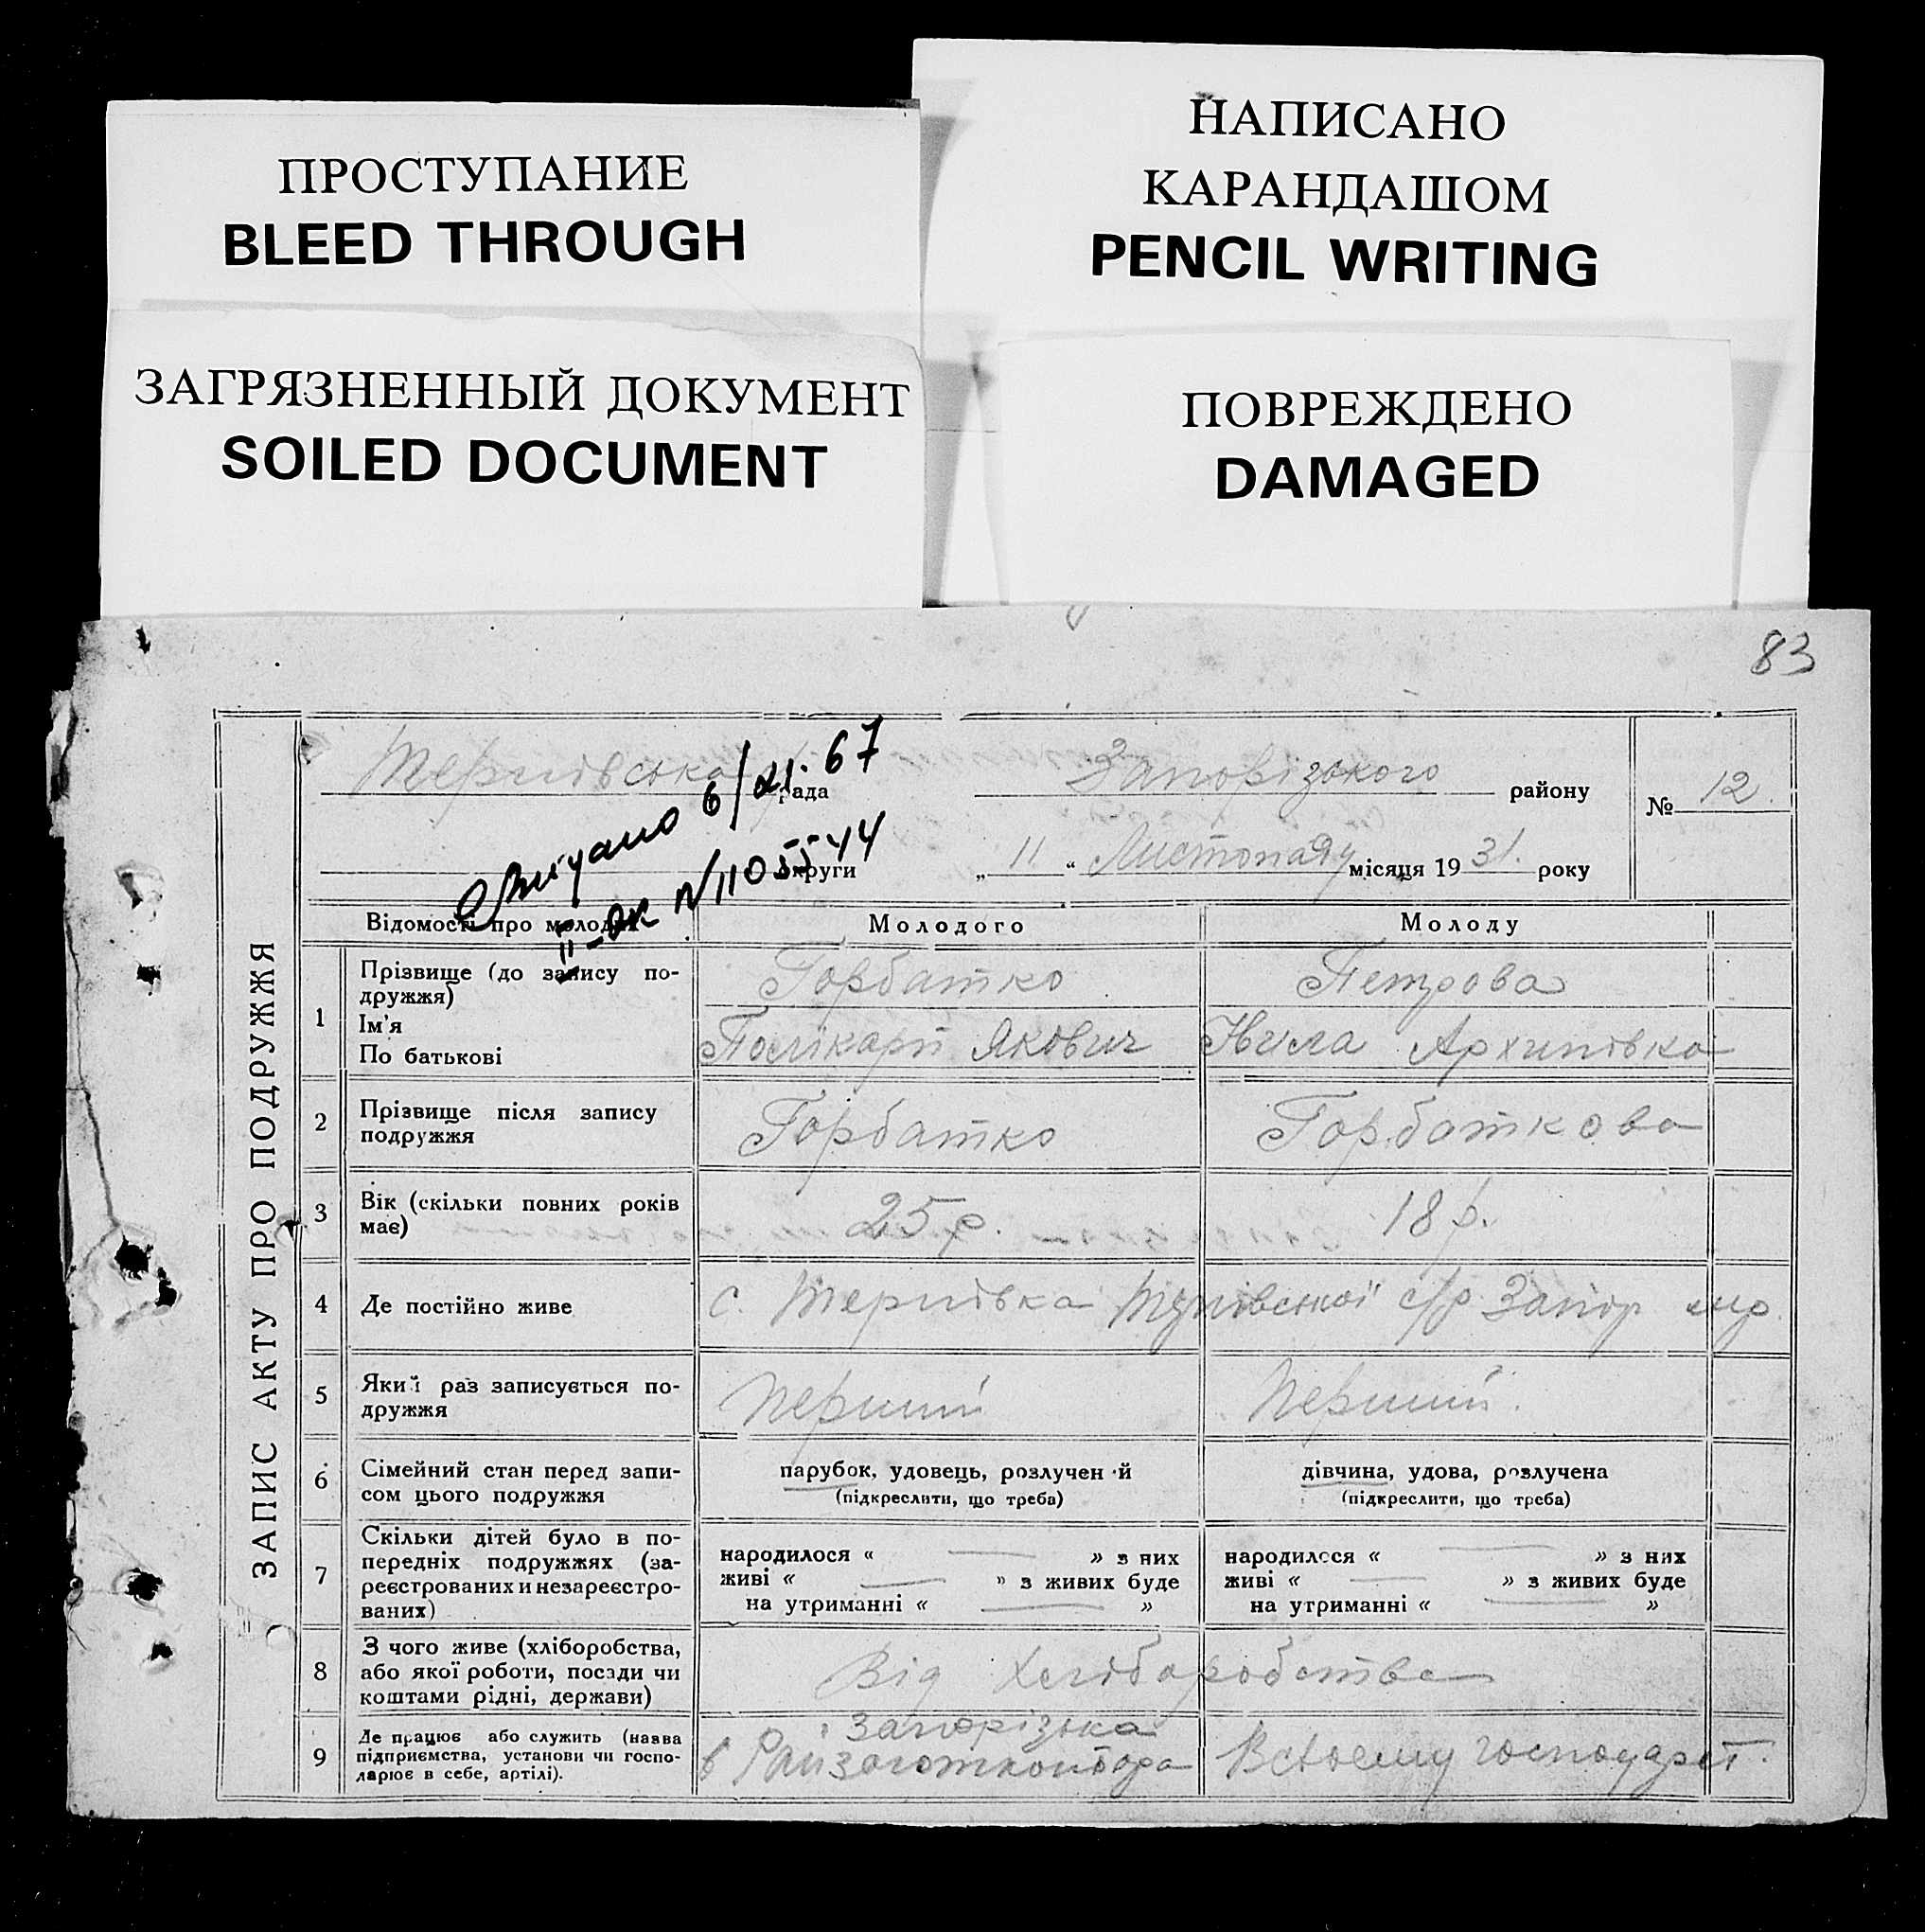 НАПИСАНО
КАРАНДАШОМ
PENCIL WRITING
ПРОСТУПАНИЕ
BLEED THROUGH
ЗАГРЯЗНЕННЫЙ ДОКУМЕНТ
SOILED DOCUMENT
ПОВРЕЖДЕНО
DAMAGED
83
ЗАПИС АКТУ ПРО ПОДРУЖЖЯ
Тернівська рада Запорізького району № 12.
округи „ 11 “ Листопаду місяця 19 31. року
Видано 6/ 67
II-ЯК N 1105544
Відомості про молодих Молодого Молоду
1 Прізвище (до запису по-
дружжя) Горбатко Петрова
Ім'я
По батькові Полікарп Якович Нила Архипівна
2 Прізвище після запису
подружжя Горбатко Горбаткова
3 Вік (скільки повних років
має) 25 р. 18 р.
4 Де постійно живе с. Тернівка Тернівської с/р. Запор
5 Який раз записується по-
дружжя перший перший.
6 Сімейний стан перед запи-
сом цього подружжя парубок, удовець, розлучен й дівчина, удова, розлучена
(підкреслити, що треба) (підкреслити, що треба)
7 Скільки дітей було в по-
передніх подружжях (за-
реєстрованих и незареєстро-
ваних)
народилося « — » з них народилося « — » з них
живі « — » з живих буде живі « — » з живих буде
на утриманні « — » на утриманні « — »
8 З чого живе (хліборобства,
або якої роботи, посади чи
коштами рідні, держави) Від хліборобства
9 Де працює або служить (назва
підприємства, установи чи госпо-
дарює в себе, артілі).
Запорізька
в Райзаготконтора В своему господарст.